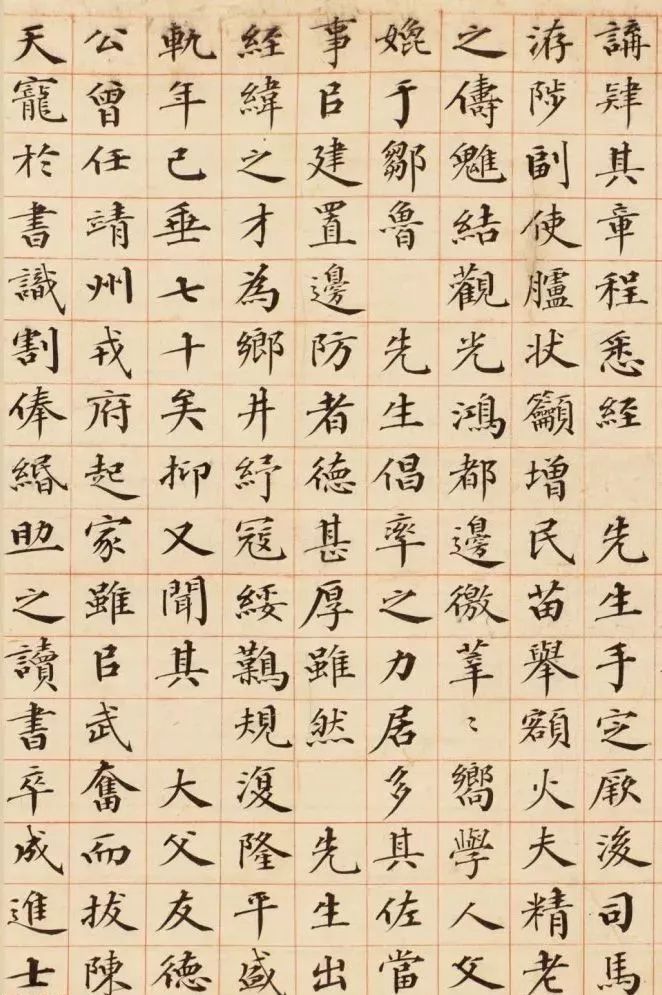 講肄其章程悉經先生手定厥後司馬
洊陟副使臚状籲增民苗舉額火夫精老
之儔魋結觀光鴻都邊徼莘〻嚮學人文
媲于鄒魯先生倡率之力居多其佐當
事㠯建置邊防者德甚厚雖然先生出
經緯之才為鄉井紓寇綏鷄規復隆平盛
軌年已垂七十矣抑又聞其大父友德
公曾任靖州戎府起家雖㠯武奮而拔陳
天寵於書識割俸緡助之讀書卒成進士